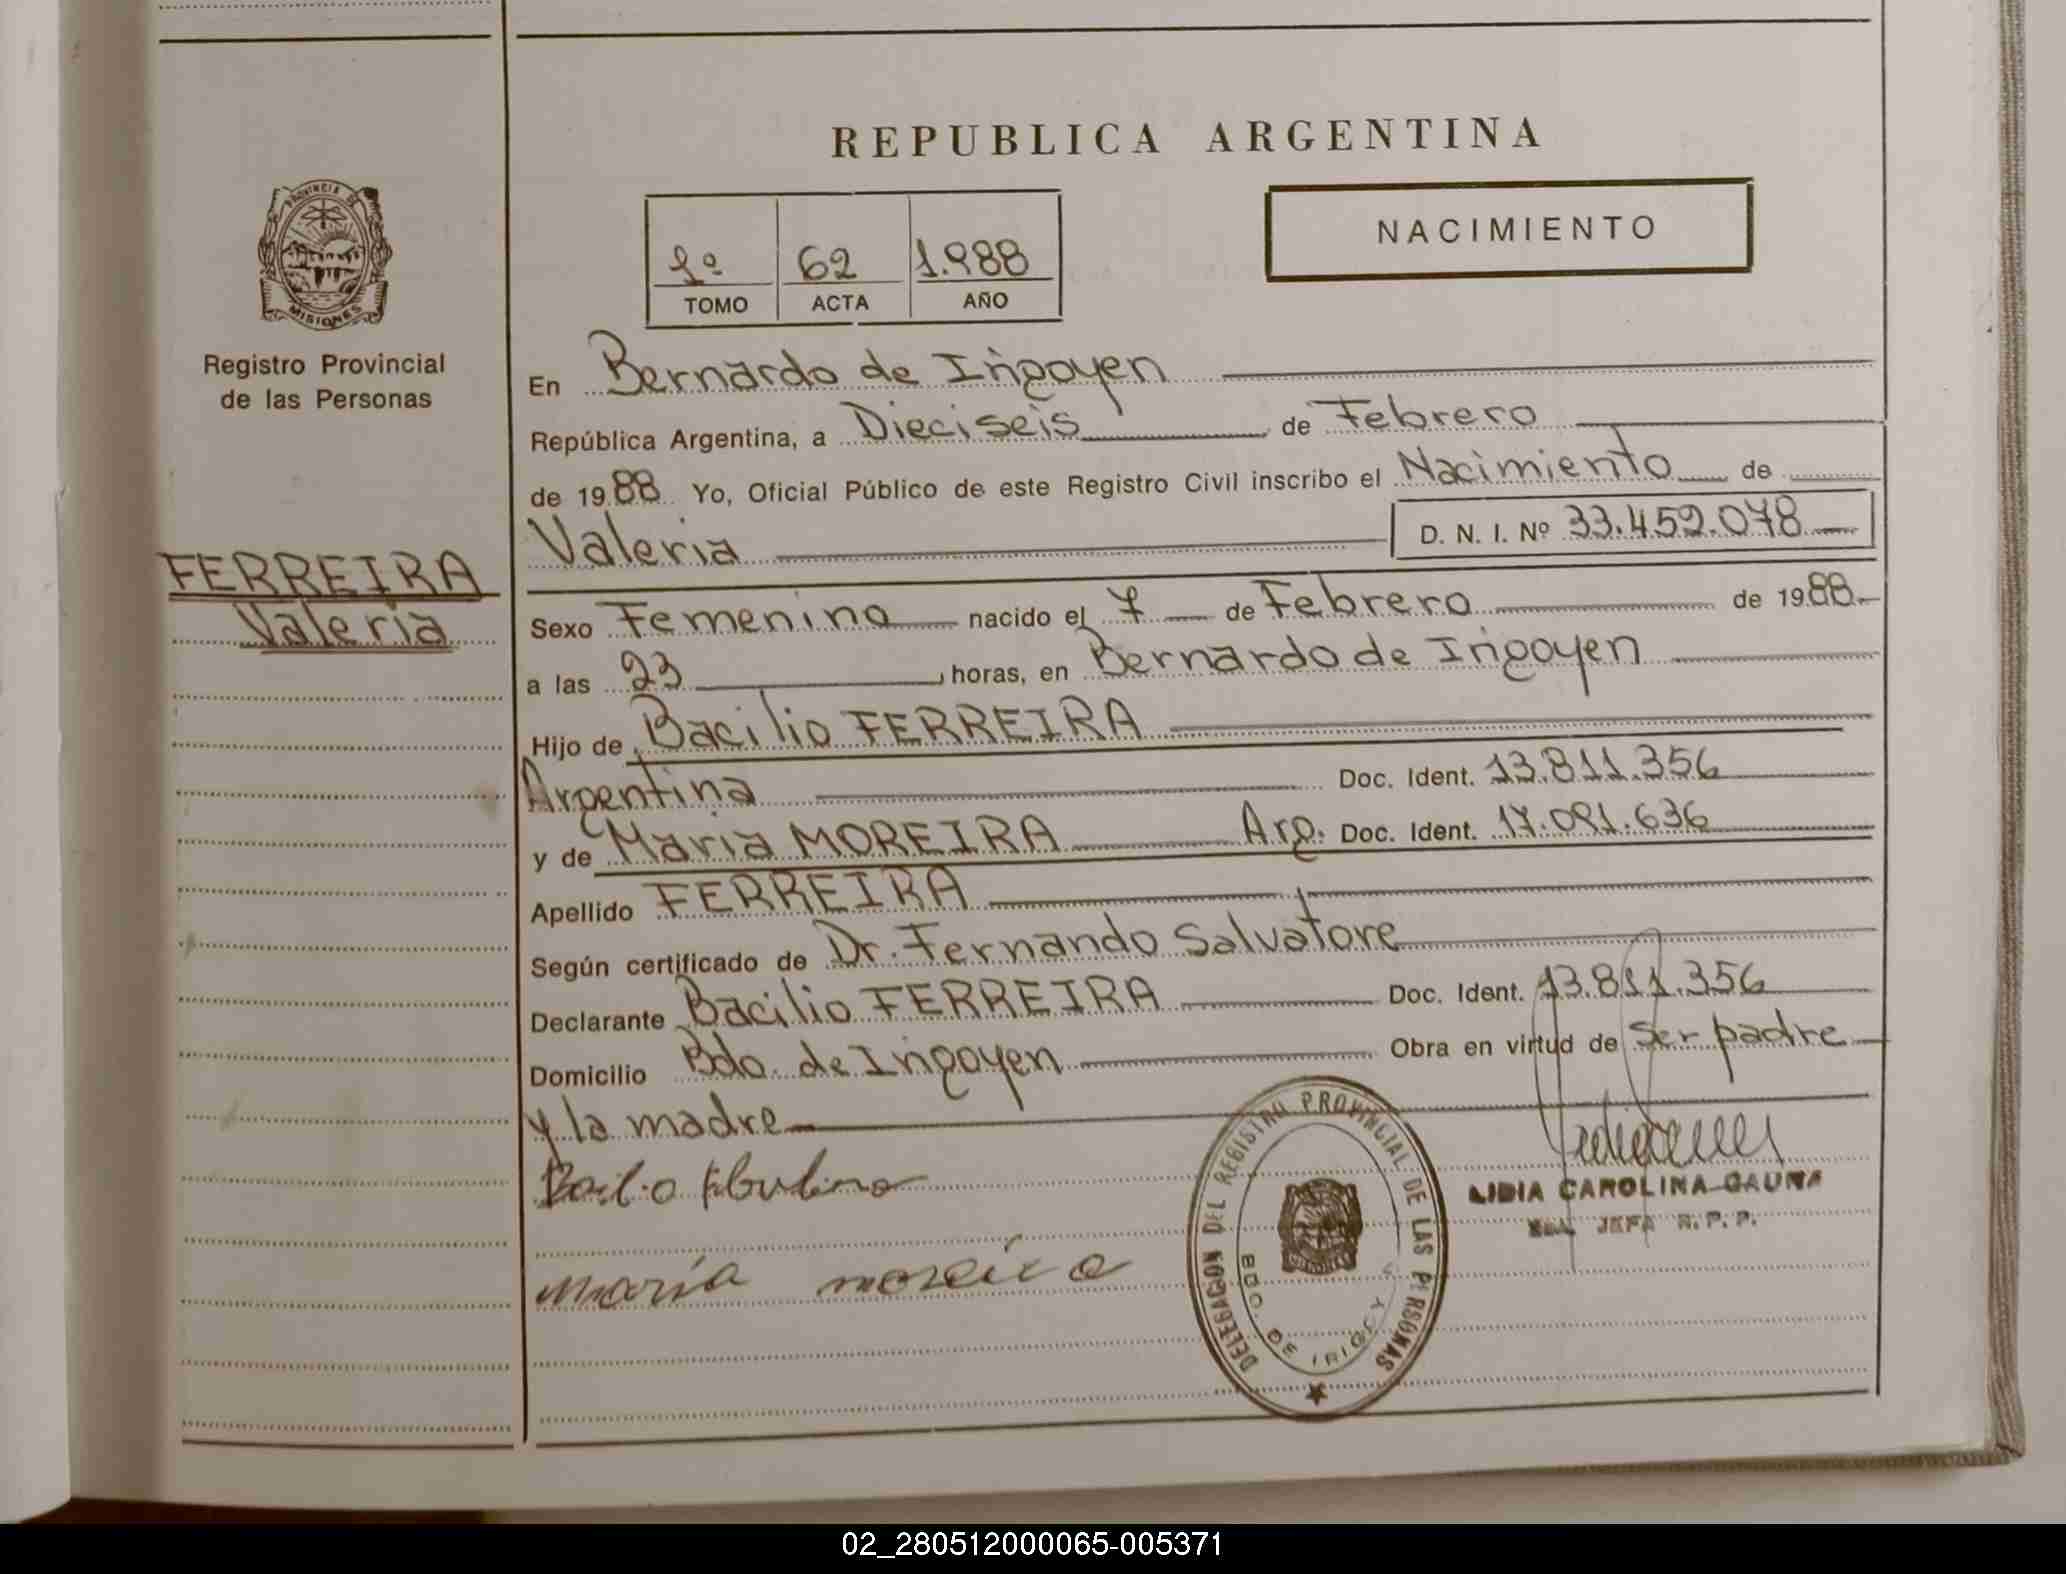 REPUBLICA ARGENTINA
PROVINCIA DE
MISIONES
Registro Provincial
de las Personas
1º 62 1.988
TOMO ACTA AÑO
NACIMIENTO
En Bernardo de Irigoyen
República Argentina, a Dieciseis de Febrero
de 1988 Yo, Oficial Público de este Registro Civil inscribo el Nacimiento de
Valeria D. N. I. Nº 33.452.078
FERREIRA
Valeria
Sexo Femenino nacido el 7 de Febrero de 1988
a las 23 horas, en Bernardo de Irigoyen
Hijo de Bacilio FERREIRA
Argentina Doc. Ident. 13.811.356
y de Maria MOREIRA Arg. Doc. Ident. 17.091.636
Apellido FERREIRA
Según certificado de Dr. Fernando Salvatore
Declarante Bacilio FERREIRA Doc. Ident. 13.811.356
Domicilio Bdo. de Irigoyen Obra en virtud de ser padre
y la madre
maría moreira
DELEGACION DEL REGISTRO PROVINCIAL DE LAS PERSONAS
BDO. DE IRIGOY
LIDIA CAROLINA GAUNA
JEFA R.P.P.
02_280512000065-005371